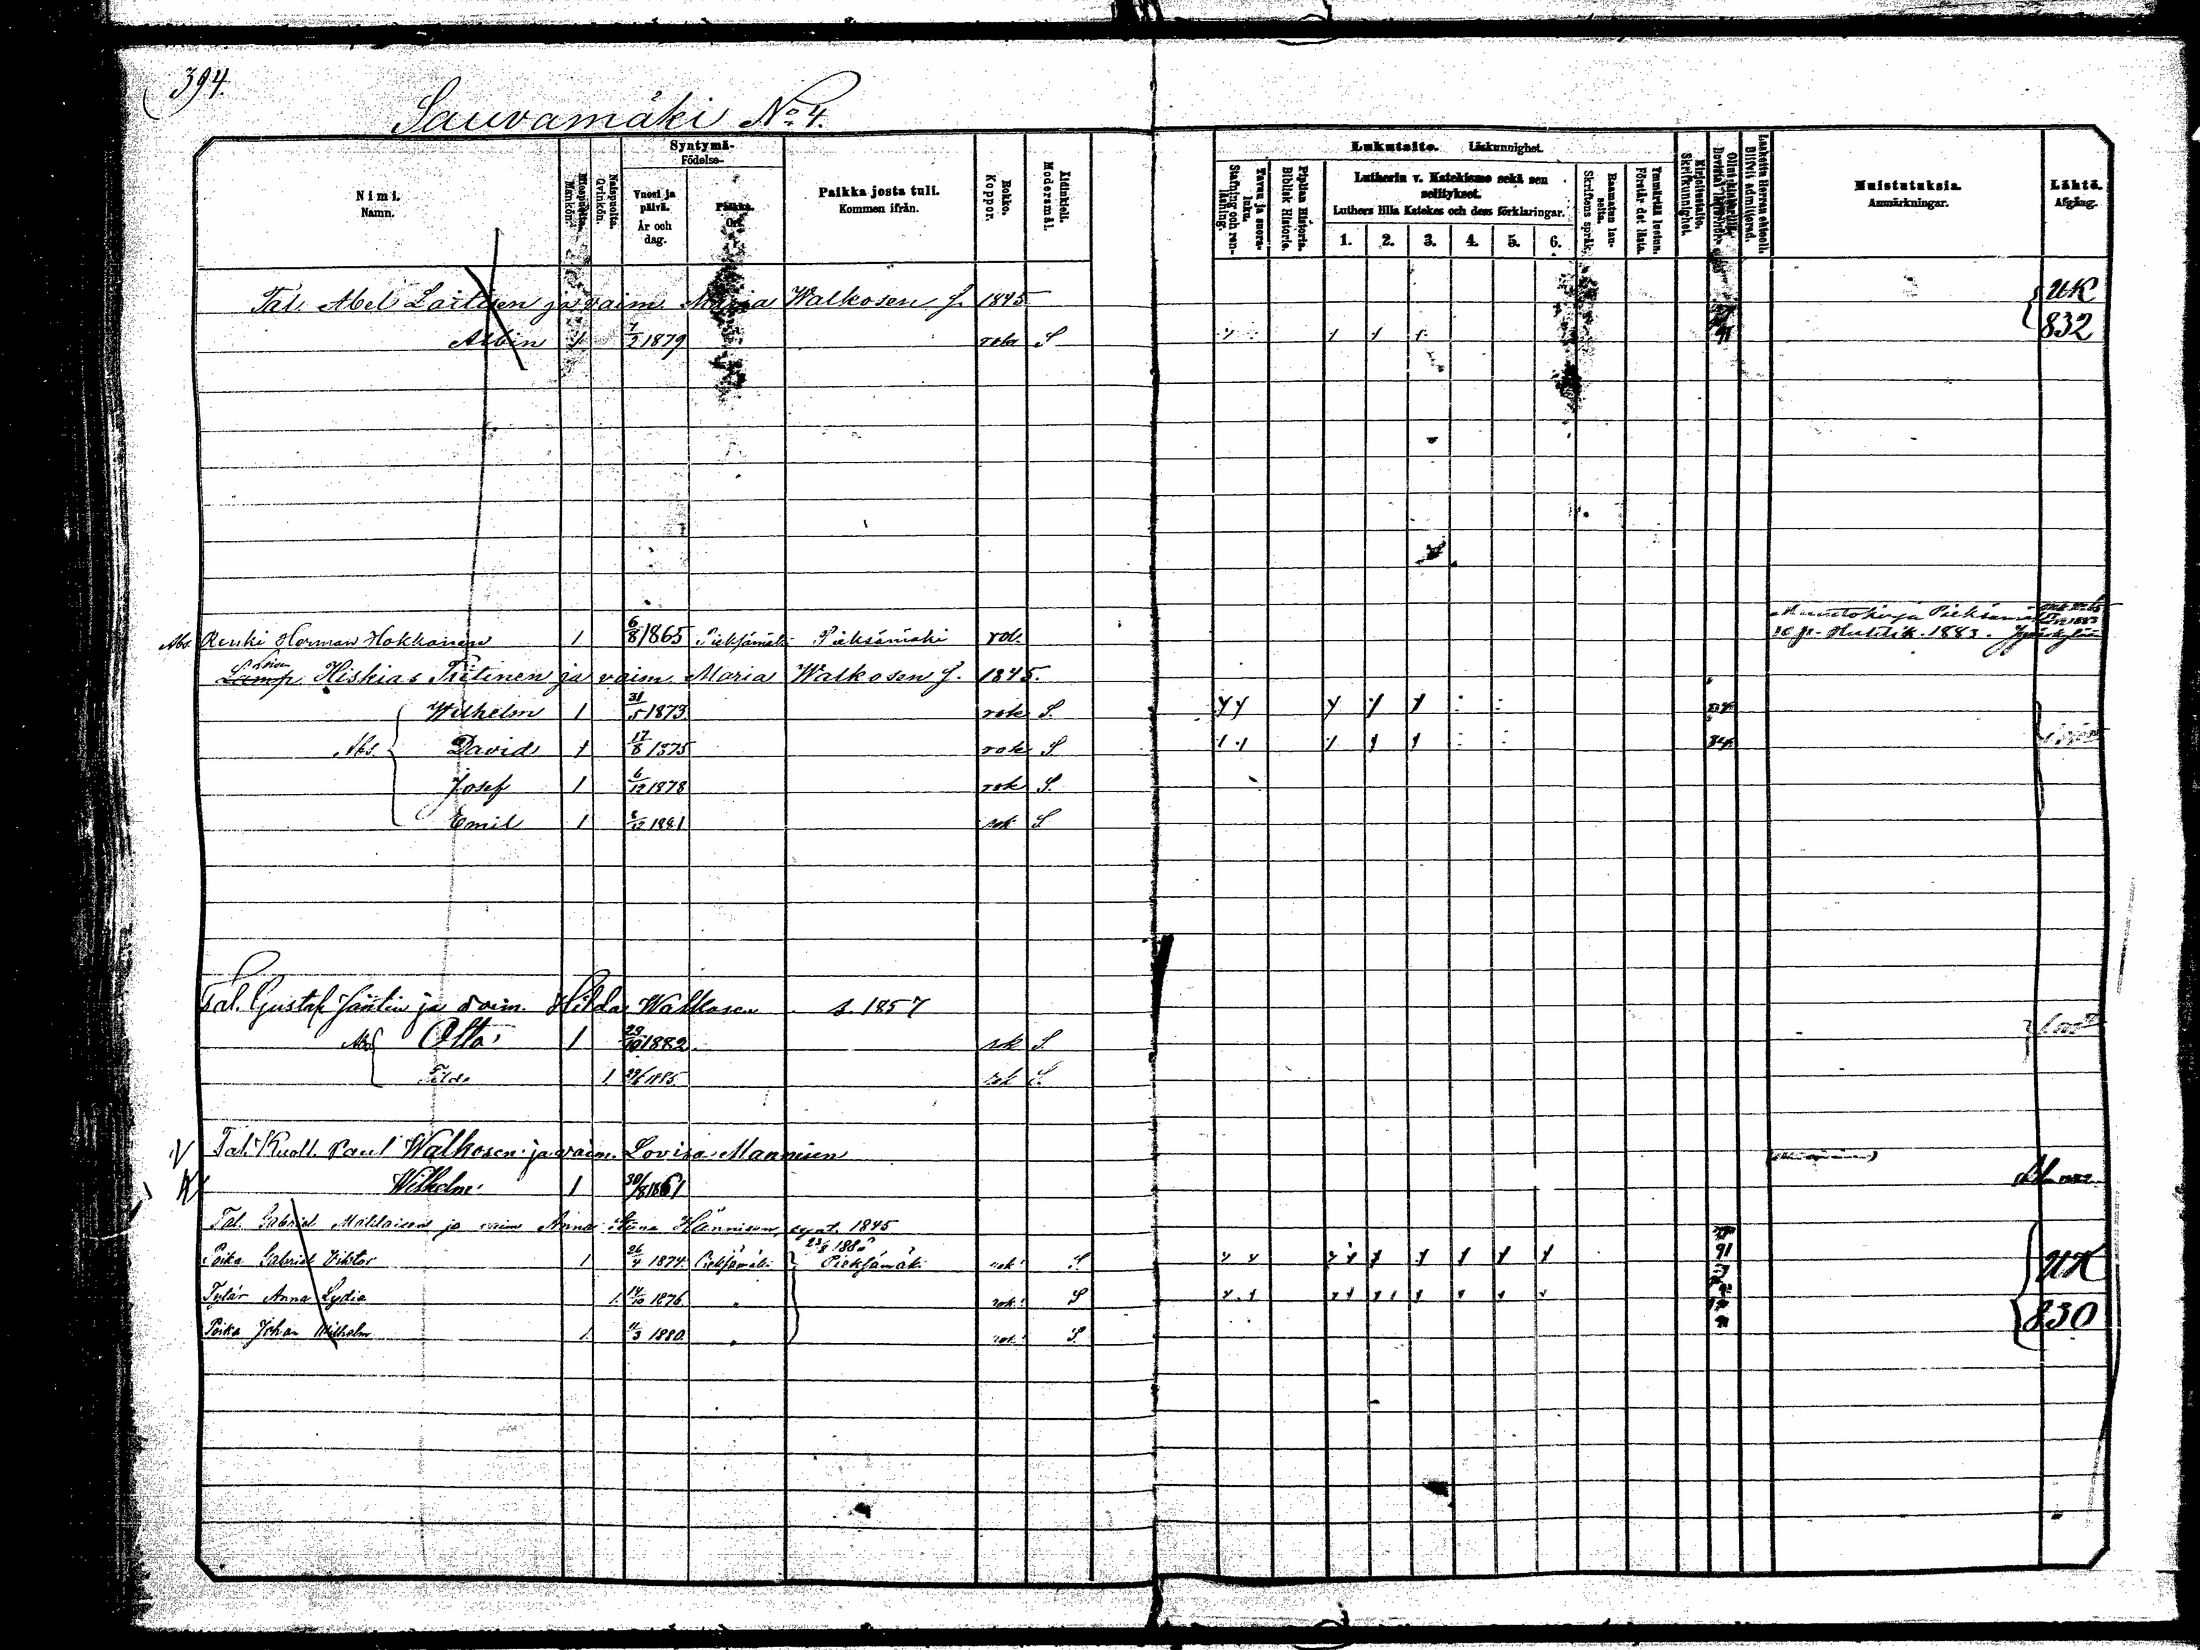 394.
Sauvamäki No 4.
Nimi.
Namn.
Miespuolta.
Mankön.
Naispuolta.
Qvinkön.
Syntymä-
Födelse-
Vuosi ja päivä.
År och dag.
Paikka.
Ort.
Paikka josta tuli.
Kommen ifrån.
Rokko.
Koppor.
Äidinkieli.
Modersmål.
Lukutaito. Läskunnighet.
Tavuu ja suora-luku.
Stafning och ren-läsning.
Piplian Historia.
Biblisk Historie.
Lutherin v. Katekismo sekä sen selitykset.
Luthers lilla Katekes och dess förklaringar.
1. 2. 3. 4. 5. 6.
Raamatun lau-seita.
Skriftens språk.
Ymmärtää luetun.
Förstår det lästa.
Kirjoitustaito.
Skrifkunnighet.
Muistutuksia.
Anmärkningar.
Lähtö.
Afgång.
Tal. Abel Laitinen ja vaim. Maria Walkosen f. 1845 UK
Albin 1 7/2 1879 rok S 91 832
Abs. Renki Herman Hokkanen 1 6/8 1865 Pieksämäki Pieksämäki rok. Muutokirja Pieksämäki
1883. Jyväskylän
Loisen Lamp. Hiskias Tiitinen ja vaim. Maria Walkosen f. 1845.
Wilhelm 1 31/5 1873 rok S.
Abs. David 1 17/8 1875 rok S
Josef 1 6/12 1878 rok S.
Emil 1 1881 rok S
Tal. Gustaf Jäntin ja vaim. Hilda Walkosen s. 1857
Abs Otto 1 29/10 1882 rok S.
Tilda 1 1885 rok S.
Tal. Kuoll. Paul Walkosen ja vaim. Lovisa Mannisen
Wilhelm 1 30/8 1861
Tal. Gabriel Matilaisen ja vaim Anna Stina Hännisen, synt. 1845
Poika Gabriel Viktor 1 26/4 1874 Pieksämäki Pieksämäki rok S 91 UK
Tytär Anna Lydia 1. 14/10 1876 " rok S
Poika Johan Wilhelm 1. 11/3 1880. " rok S 830